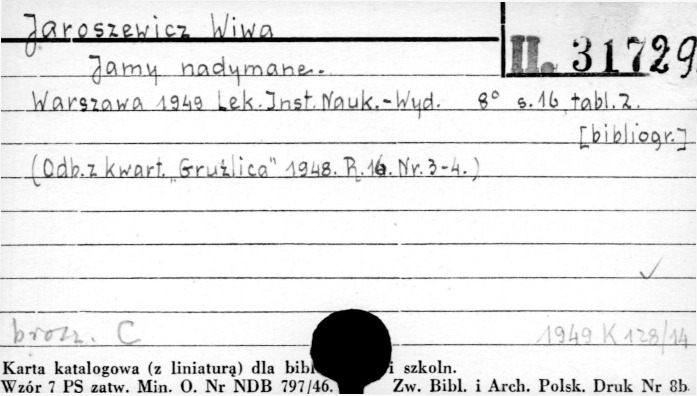 Jaroszewicz Wiwa
II. 31729
Jamy nadymane.
Warszawa 1949 Lek. Inst. Nauk.-Wyd. 8° s.16, tabl.2.
[bibliogr.]
(Odb. z kwart. „Gruźlica" 1948. R.16. Nr. 3-4.)
brosz. C
1949 K 128/14
Karta katalogowa (z liniaturą) dla bibl i szkoln.
Wzór 7 PS zatw. Min. O. Nr NDB 797/46. Zw. Bibl. i Arch. Polsk. Druk Nr 8b.